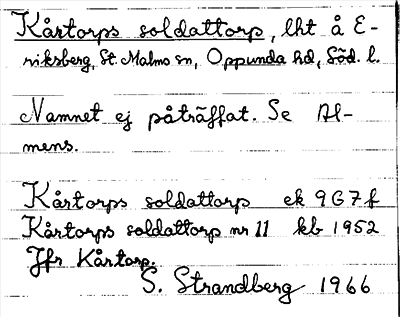 Kårtorps soldattorp, lht å E-
riksberg, St. Malms sn, Oppunda hd, Söd. l.
Namnet ej påträffat. Se Al-
mens.
Kårtorps soldattorp ek 9G7f
Kårtorps soldattorp nr 11 kb 1952
Jfr Kårtorp.
S. Strandberg 1966